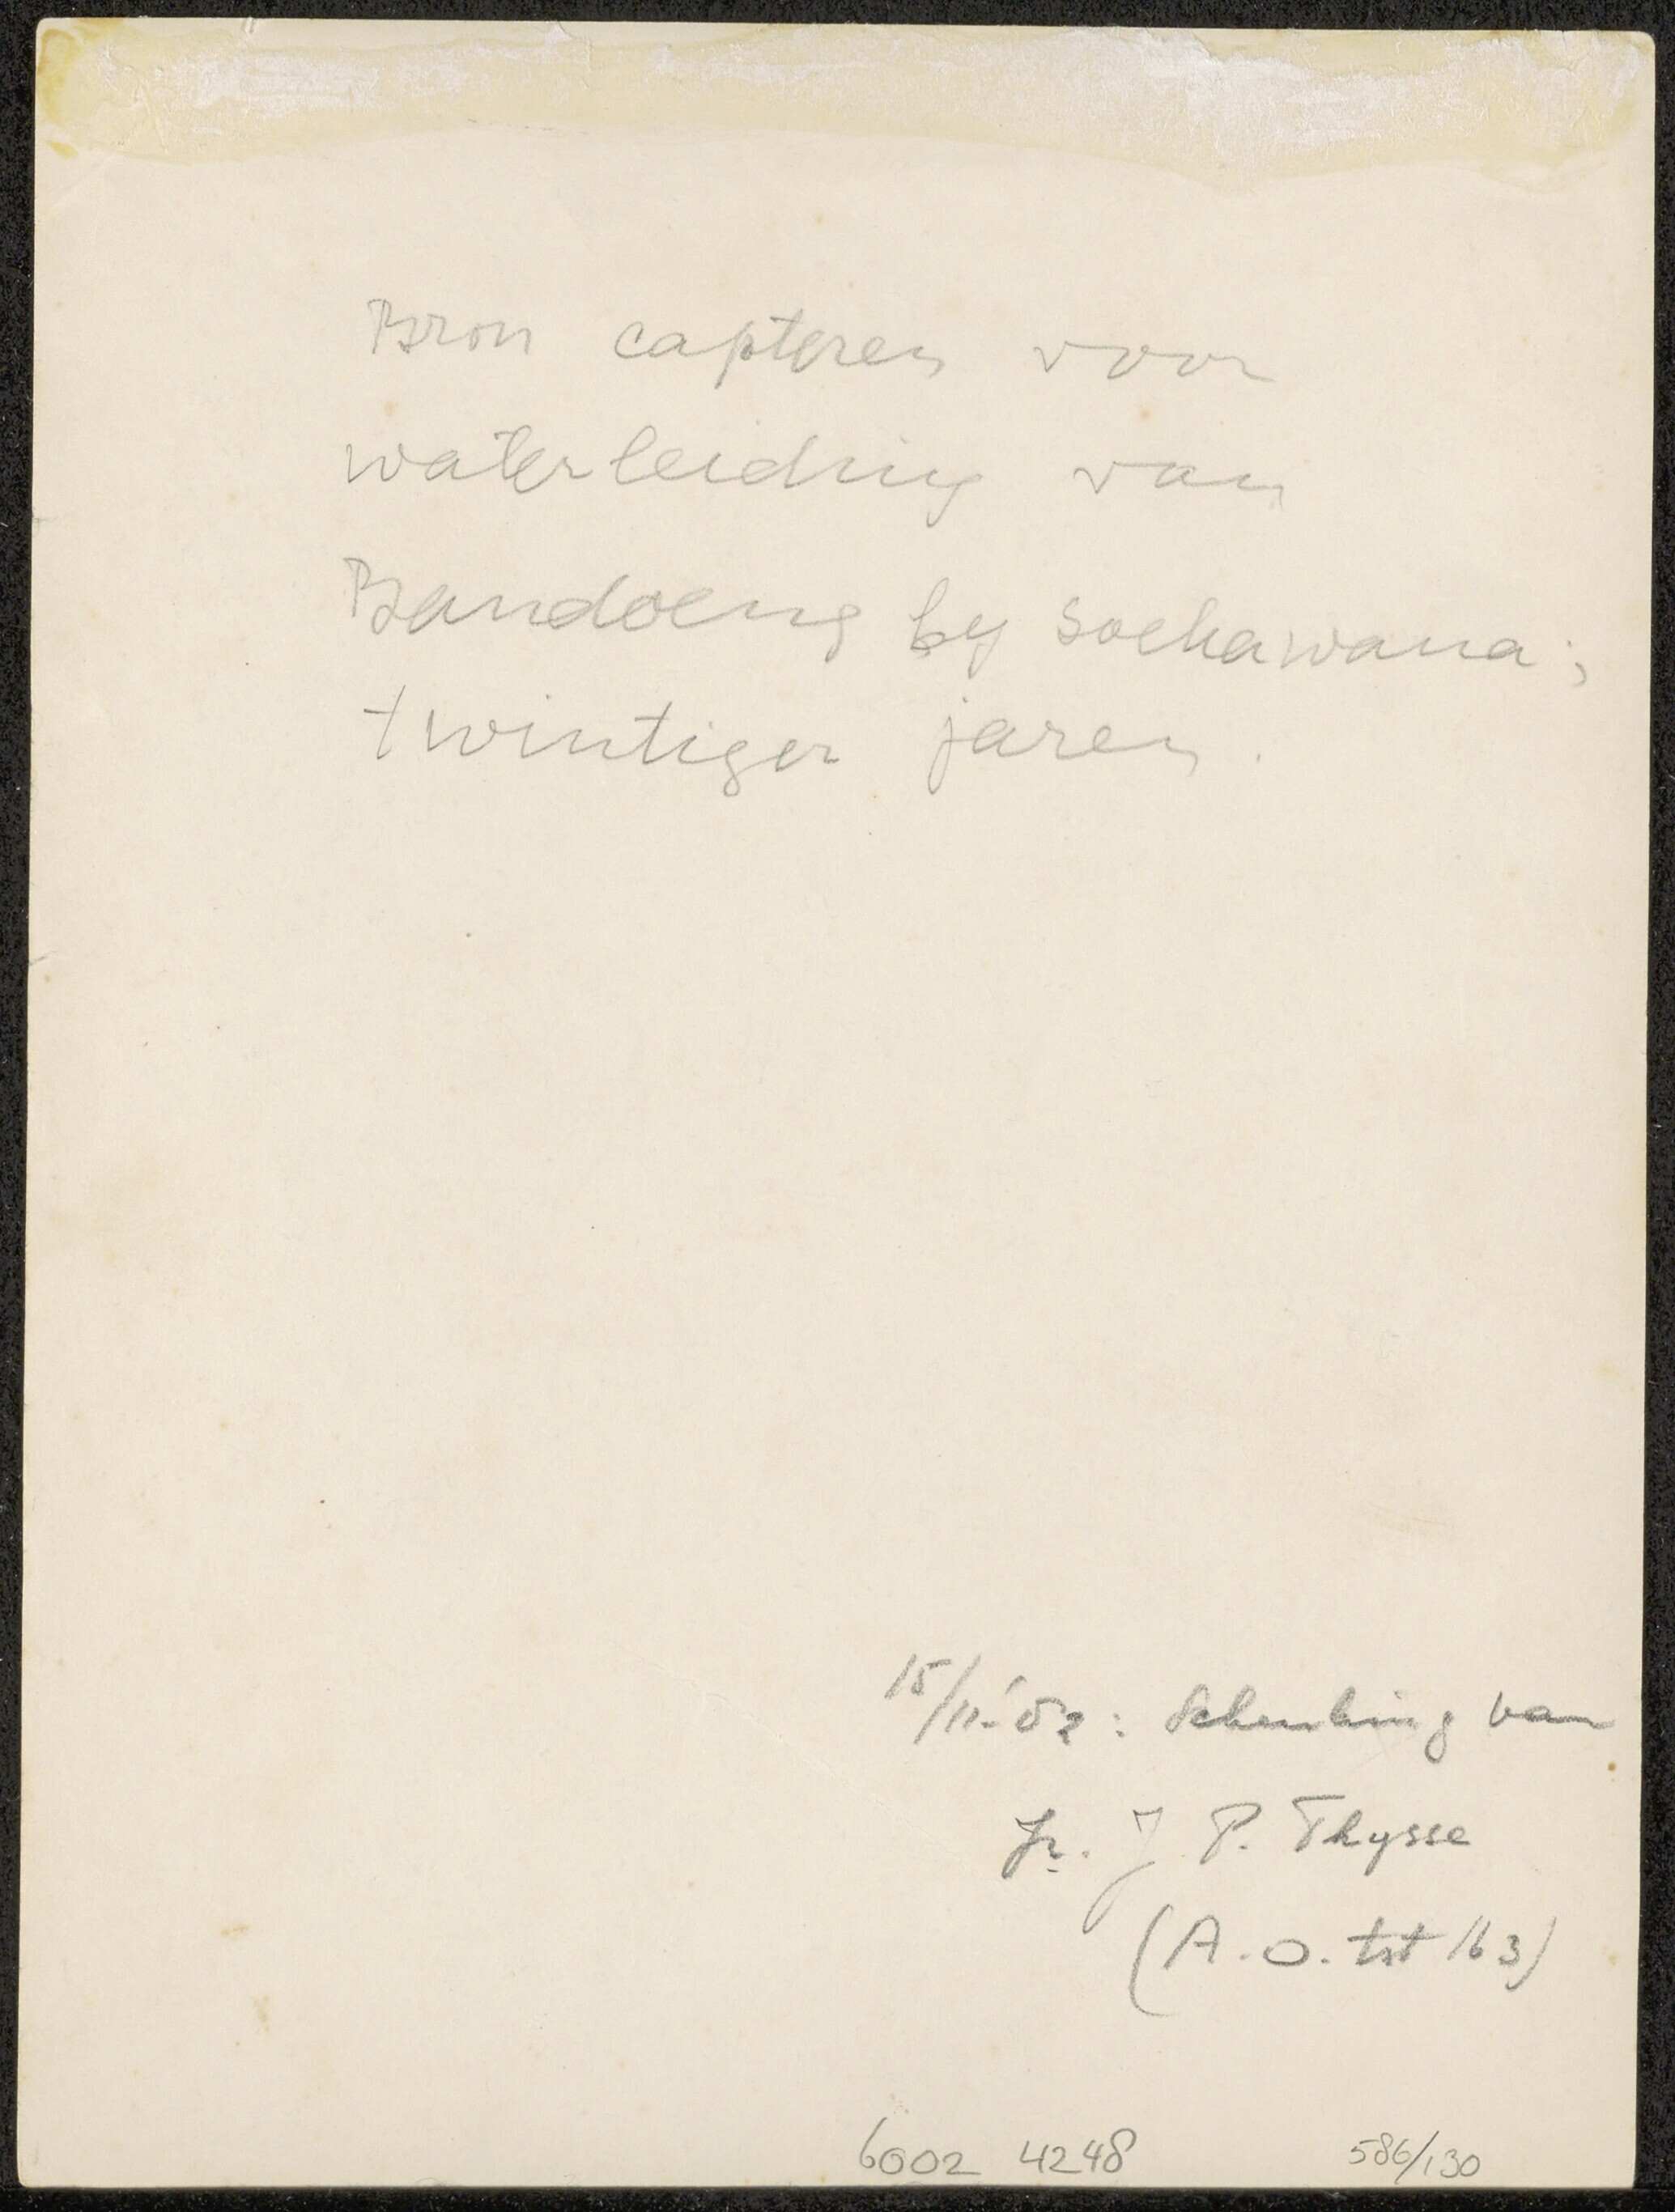 Bron capteren voor
waterleiding van
Bandoeng by Soekawana;
twintiger jaren.
15/11-'52: Schenking van
Ir. J. P. Thysse
(A.O. tst 163)
6002 4248 586/130